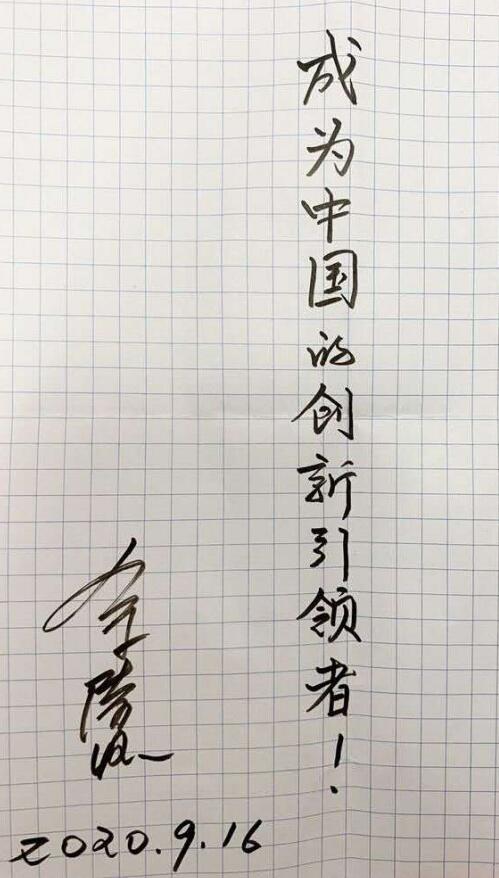 成为中国的创新引领者！
2020.9.16